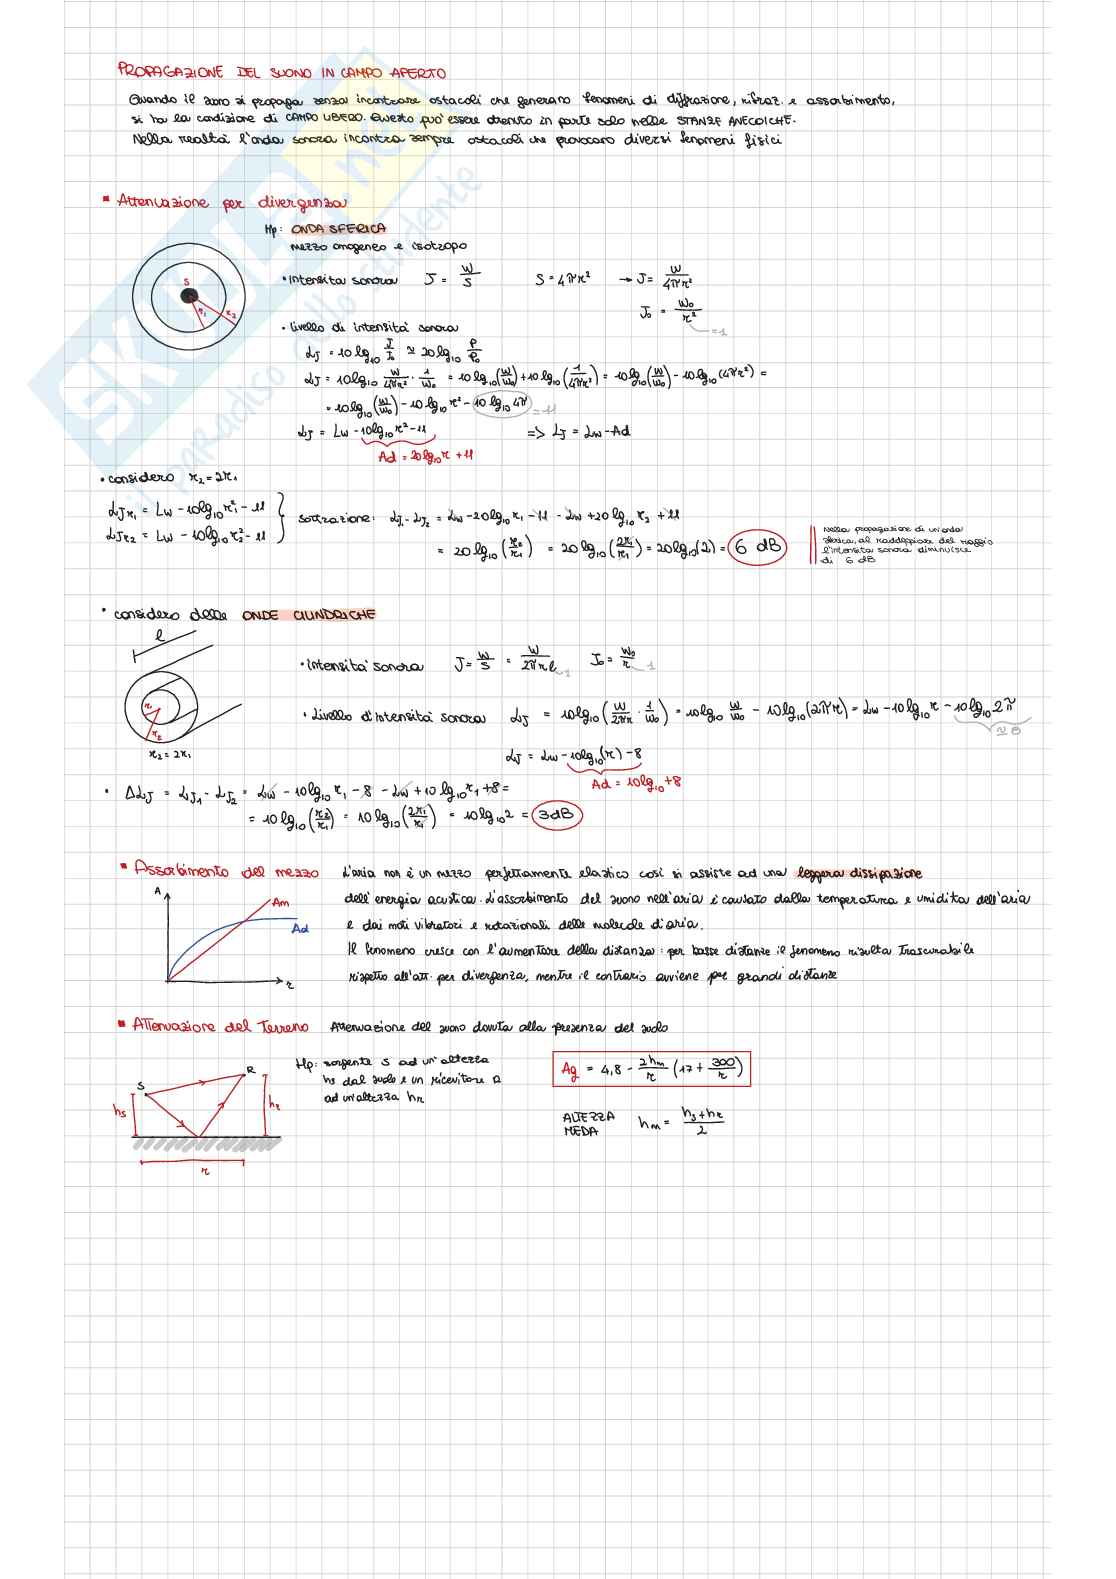 PROPAGAZIONE DEL SUONO IN CAMPO APERTO
Quando il suono si propaga senza incontrare ostacoli che generano fenomeni di diffrazione, rifraz. e assorbimento,
si ha la condizione di CAMPO LIBERO. Questo può essere ottenuto in parte solo nelle STANZE ANECOICHE.
Nella realtà l'onda sonora incontra sempre ostacoli che provocano diversi fenomeni fisici
▪ Attenuazione per divergenza
Hp: ONDA SFERICA
mezzo omogeneo e isotropo
S
r₁ r₂
• Intensità sonora J = W/S S = 4πr² → J = W/4πr²
J₀ = W₀/r² =1
• livello di intensità sonora
LJ = 10 lg₁₀ J/J₀ ≃ 20 lg₁₀ P/P₀
LJ = 10 lg₁₀ W/4πr² · 1/W₀ = 10 lg₁₀ (W/W₀) + 10 lg₁₀ (1/4πr²) = 10 lg₁₀ (W/W₀) - 10 lg₁₀ (4πr²) =
= 10 lg₁₀ (W/W₀) - 10 lg₁₀ r² - 10 lg₁₀ 4π = 11
LJ = LW - 10 lg₁₀ r² - 11 => LJ = LW - Ad
Ad = 20 lg₁₀ r + 11
• considero r₂ = 2r₁
LJr₁ = LW - 10 lg₁₀ r₁² - 11
LJr₂ = LW - 10 lg₁₀ r₂² - 11
sottrazione: LJ₁ - LJ₂ = LW - 20 lg₁₀ r₁ - 11 - LW + 20 lg₁₀ r₂ + 11
= 20 lg₁₀ (r₂/r₁) = 20 lg₁₀ (2r₁/r₁) = 20 lg₁₀ (2) = 6 dB
Nella propagazione di un'onda
sferica, al raddoppiare del raggio
l'intensità sonora diminuisce
di 6 dB
• considero delle ONDE CILINDRICHE
l
r₁
r₂
r₂ = 2r₁
• Intensità sonora J = W/S = W/2πrl 1 J₀ = W₀/r 1
• Livello d'intensità sonora LJ = 10 lg₁₀ (W/2πr · 1/W₀) = 10 lg₁₀ W/W₀ - 10 lg₁₀ (2πr) = LW - 10 lg₁₀ r - 10 lg₁₀ 2π
≃ 8
LJ = LW - 10 lg₁₀ (r) - 8
Ad = 10 lg₁₀ + 8
• ΔLJ = LJ₁ - LJ₂ = LW - 10 lg₁₀ r₁ - 8 - LW + 10 lg₁₀ r₁ + 8 =
= 10 lg₁₀ (r₂/r₁) = 10 lg₁₀ (2r₁/r₁) = 10 lg₁₀ 2 = 3 dB
▪ Assorbimento del mezzo L'aria non è un mezzo perfettamente elastico così si assiste ad una leggera dissipazione
dell'energia acustica. L'assorbimento del suono nell'aria è causato dalla temperatura e umidità dell'aria
e dai moti vibratori e rotazionali delle molecole d'aria.
Il fenomeno cresce con l'aumentare della distanza: per basse distanze il fenomeno risulta trascurabile
rispetto all'att. per divergenza, mentre il contrario avviene per grandi distanze
A
Am
Ad
r
▪ Attenuazione del terreno Attenuazione del suono dovuta alla presenza del suolo
Hp: sorgente S ad un'altezza
hs dal suolo e un ricevitore R
ad un'altezza hr
S
R
hs
hr
r
Ag = 4,8 - 2hm/r (17 + 300/r)
ALTEZZA
MEDIA
hm = hs + hr / 2
skuola.net
il paradiso dello studente